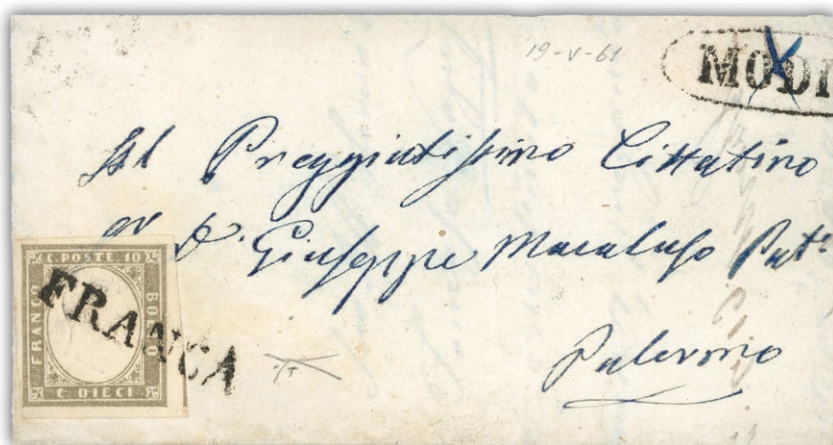 19-V-61
MODI
Al Preggiatissimo Cittatino
Dn. Giuseppe Macaluso Patr.
Palermo
C. POSTE 10
FRANCO
BOLLO
C. DIECI
FRANCA